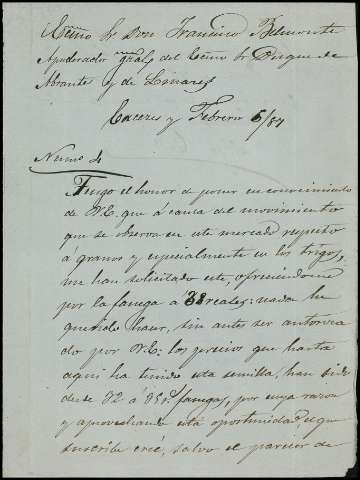 Excmo Sr Don Francisco Belmonte
Apoderado gral del Excmo Sr Duque de
Abrantes y de Linares
Caceres y Febrero 5/87
Numo 4
Tengo el honor de poner en conocimiento
de V.E. que á causa del movimiento
que se observa en este mercado respecto
á granos y especialmente en los trigos,
me han solicitado este, ofreciendome
por la fanega a 38 reales: nada he
querido hacer, sin antes ser autoriza
do por V.E: los precios que hasta
aqui ha tenido esta semilla, han sido
desde 32 á 35 r. fanega, por cuya razon
y aprovechando esta oportunidad el que
suscribe cree, salvo el parecer de